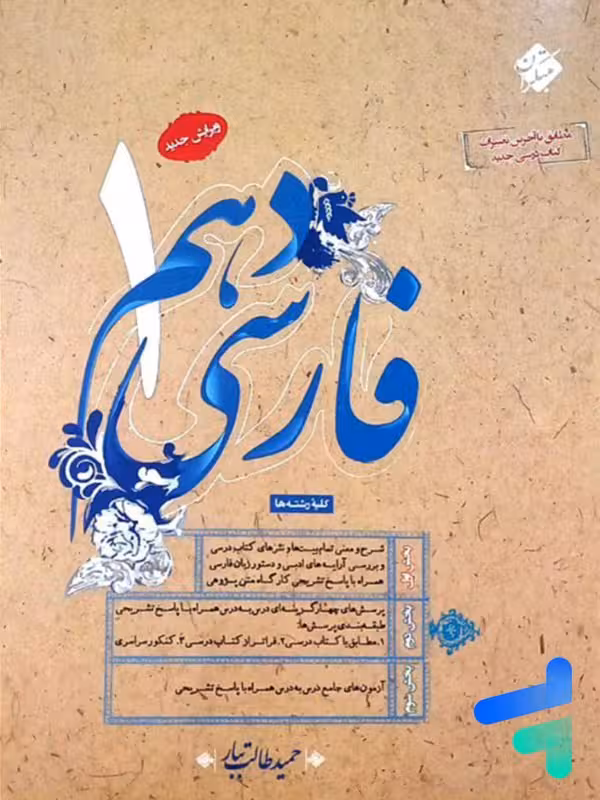 مبتکران
مطابق با آخرین تغییرات
کتاب درسی جدید
ویرایش جدید
فارسی دهم ۱
کلیهٔ رشته‌ها
بخش اول
شرح و معنی تمام بیت‌ها و نثرهای کتاب درسی
و بررسی آرایه‌های ادبی و دستور زبان فارسی
همراه با پاسخ تشریحی کارگاه متن پژوهی
بخش دوم
پرسش‌های چهارگزینه‌ای درس به درس همراه با پاسخ تشریحی
طبقه‌بندی پرسش‌ها:
۱. مطابق با کتاب درسی ۲. فراتر از کتاب درسی ۳. کنکور سراسری
بخش سوم
آزمون‌های جامع درس به درس همراه با پاسخ تشریحی
حمید طالب تبار